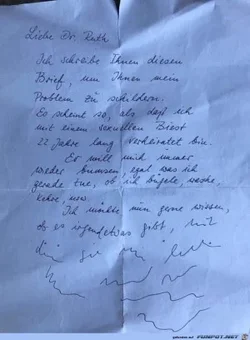 Liebe Dr. Ruth
Ich schreibe Ihnen diesen
Brief, um Ihnen mein
Problem zu schildern.
Es scheint so, als daß ich
mit einem sexuellen Biest
22 Jahre lang verheiratet bin.
Er will mich immer
wieder bumsen, egal was ich
gerade tue, ob ich bügele, wasche,
kehre, usw.
Ich möchte nun gerne wissen,
ob es irgendetwas gibt, mit
FUNPOT.NET